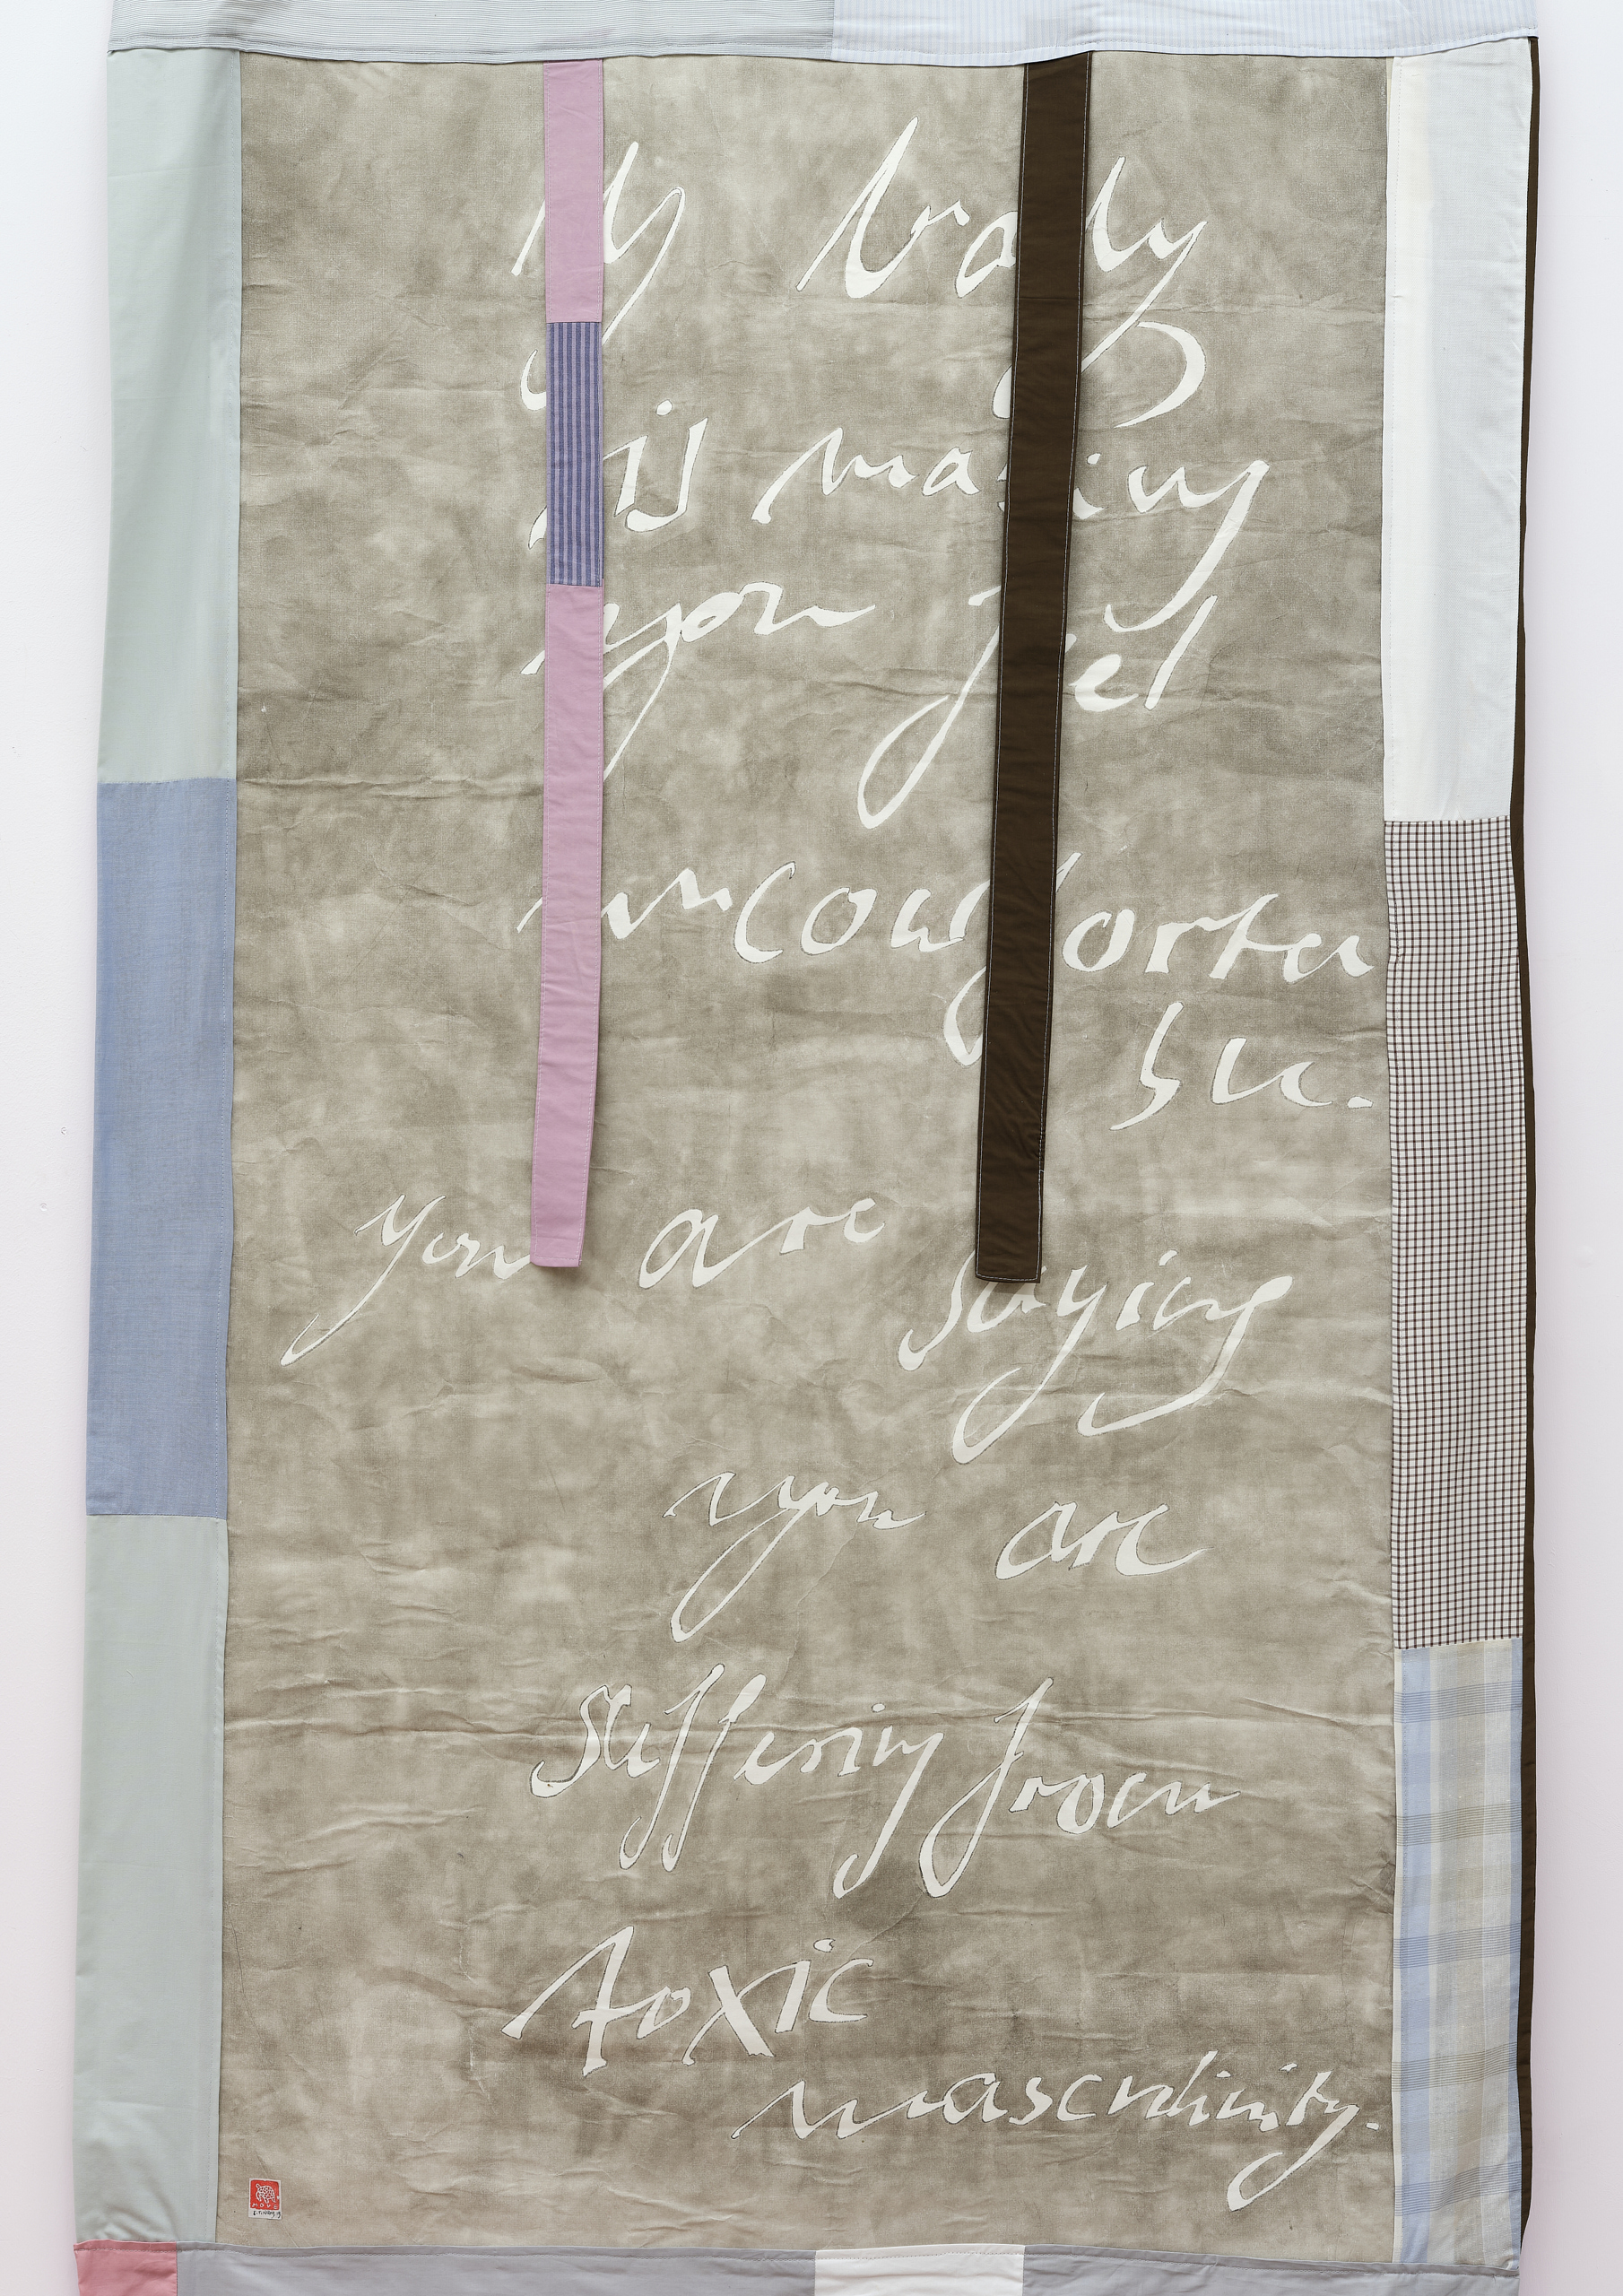 My body
is making
you feel
uncomforta
ble.
you are saying
you are
suffering from
toxic
masculinity.